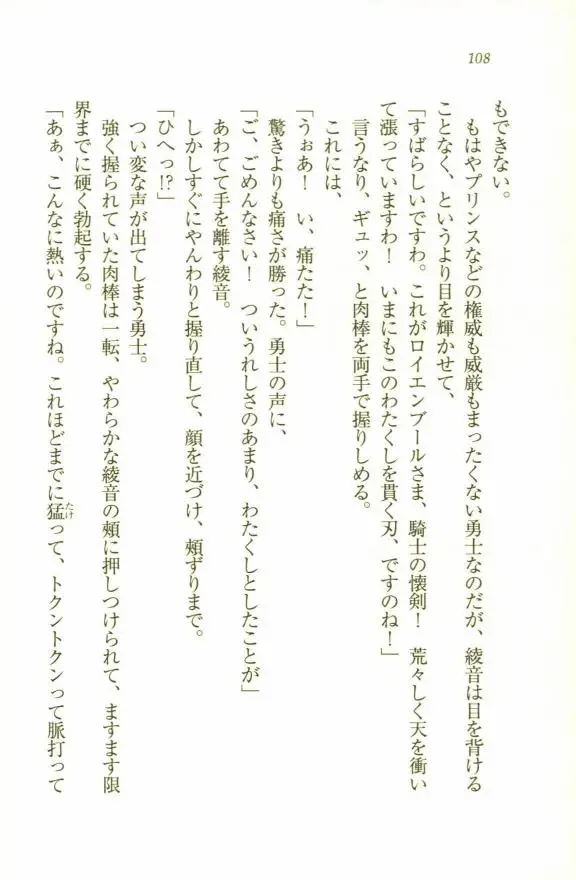 108
もできない。
　もはやプリンスなどの権威も威厳もまったくない勇士なのだが、綾音は目を背ける
ことなく、というより目を輝かせて、
「すばらしいですわ。これがロイエンブールさま、騎士の懐剣！　荒々しく天を衝い
て漲っていますわ！　いまにもこのわたくしを貫く刃、ですのね！」
　言うなり、ギュッ、と肉棒を両手で握りしめる。
　これには、
「うぉあ！　い、痛たた！」
　驚きよりも痛さが勝った。勇士の声に、
「ご、ごめんなさい！　ついうれしさのあまり、わたくしとしたことが」
　あわてて手を離す綾音。
　しかしすぐにやんわりと握り直して、顔を近づけ、頰ずりまで。
「ひへっ!?」
　つい変な声が出てしまう勇士。
　強く握られていた肉棒は一転、やわらかな綾音の頰に押しつけられて、ますます限
界までに硬く勃起する。
「あぁ、こんなに熱いのですね。これほどまでに猛たけって、トクントクンって脈打って